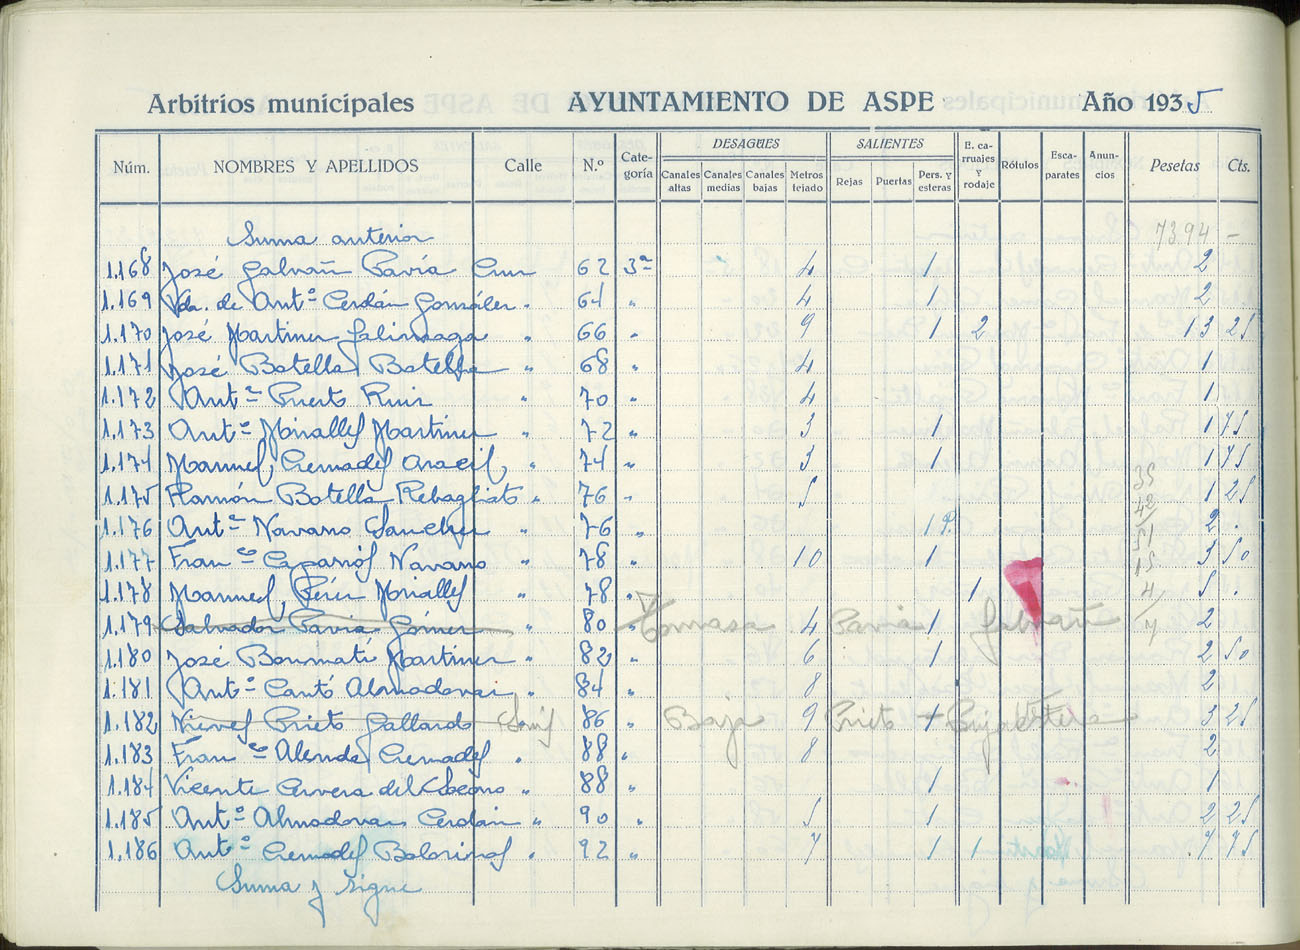 Arbitrios municipales AYUNTAMIENTO DE ASPE Año 1935
DESAGÜES SALIENTES
Núm. NOMBRES Y APELLIDOS Calle N.º Cate-goría Canales altas Canales medias Canales bajas Metros tejado Rejas Puertas Pers. y esteras E. ca-rruajes y rodaje Rótulos Esca-parates Anun-cios Pesetas Cts.
Suma anterior 7394 –
1.168 José Galvañ Pavía Cruz 62 3ª 4 1 2
1.169 Vda. de Antº Cerdán González " 64 " 4 1 2
1.170 José Martinez Galinsoga " 66 " 9 1 2 13 25
1.171 José Botella Botella " 68 " 4 1
1.172 Antº Puerto Ruiz " 70 " 4 1
1.173 Antº Miralles Martinez " 72 " 3 1 1 75
1.174 Manuel Cremades Aracil, " 74 " 3 1 1 75
1.175 Ramón Botella Rebagliato " 76 " 5 1 25
1.176 Antº Navarro Sanchez " 76 " 1 P. 2 .
1.177 Franco Caparrós Navarro " 78 " 10 1 3 50
1.178 Manuel Pérez Miralles " 78 " 1 5 .
1.179 Salvador Pavía Gómez " 80 Tomasa 4 Pavía 1 Galvañ 2
1.180 José Bonmatí Martinez " 82 " 6 1 2 50
1.181 Antº Cantó Almodovar " 84 " 8 2
1.182 Nieves Prieto Gallardo 86 " Baja 9 Prieto 1 3 25
1.183 Franco Alenda Cremades " 88 " 8 2
1.184 Vicente Cervera del Socorro " 88 " 1 1
1.185 Antº Almodovar Cerdán " 90 " 5 1 2 25
1.186 Antº Cremades Bolorinos " 92 " 7 1 1 7 75
Suma y sigue
35
42
51
15
4